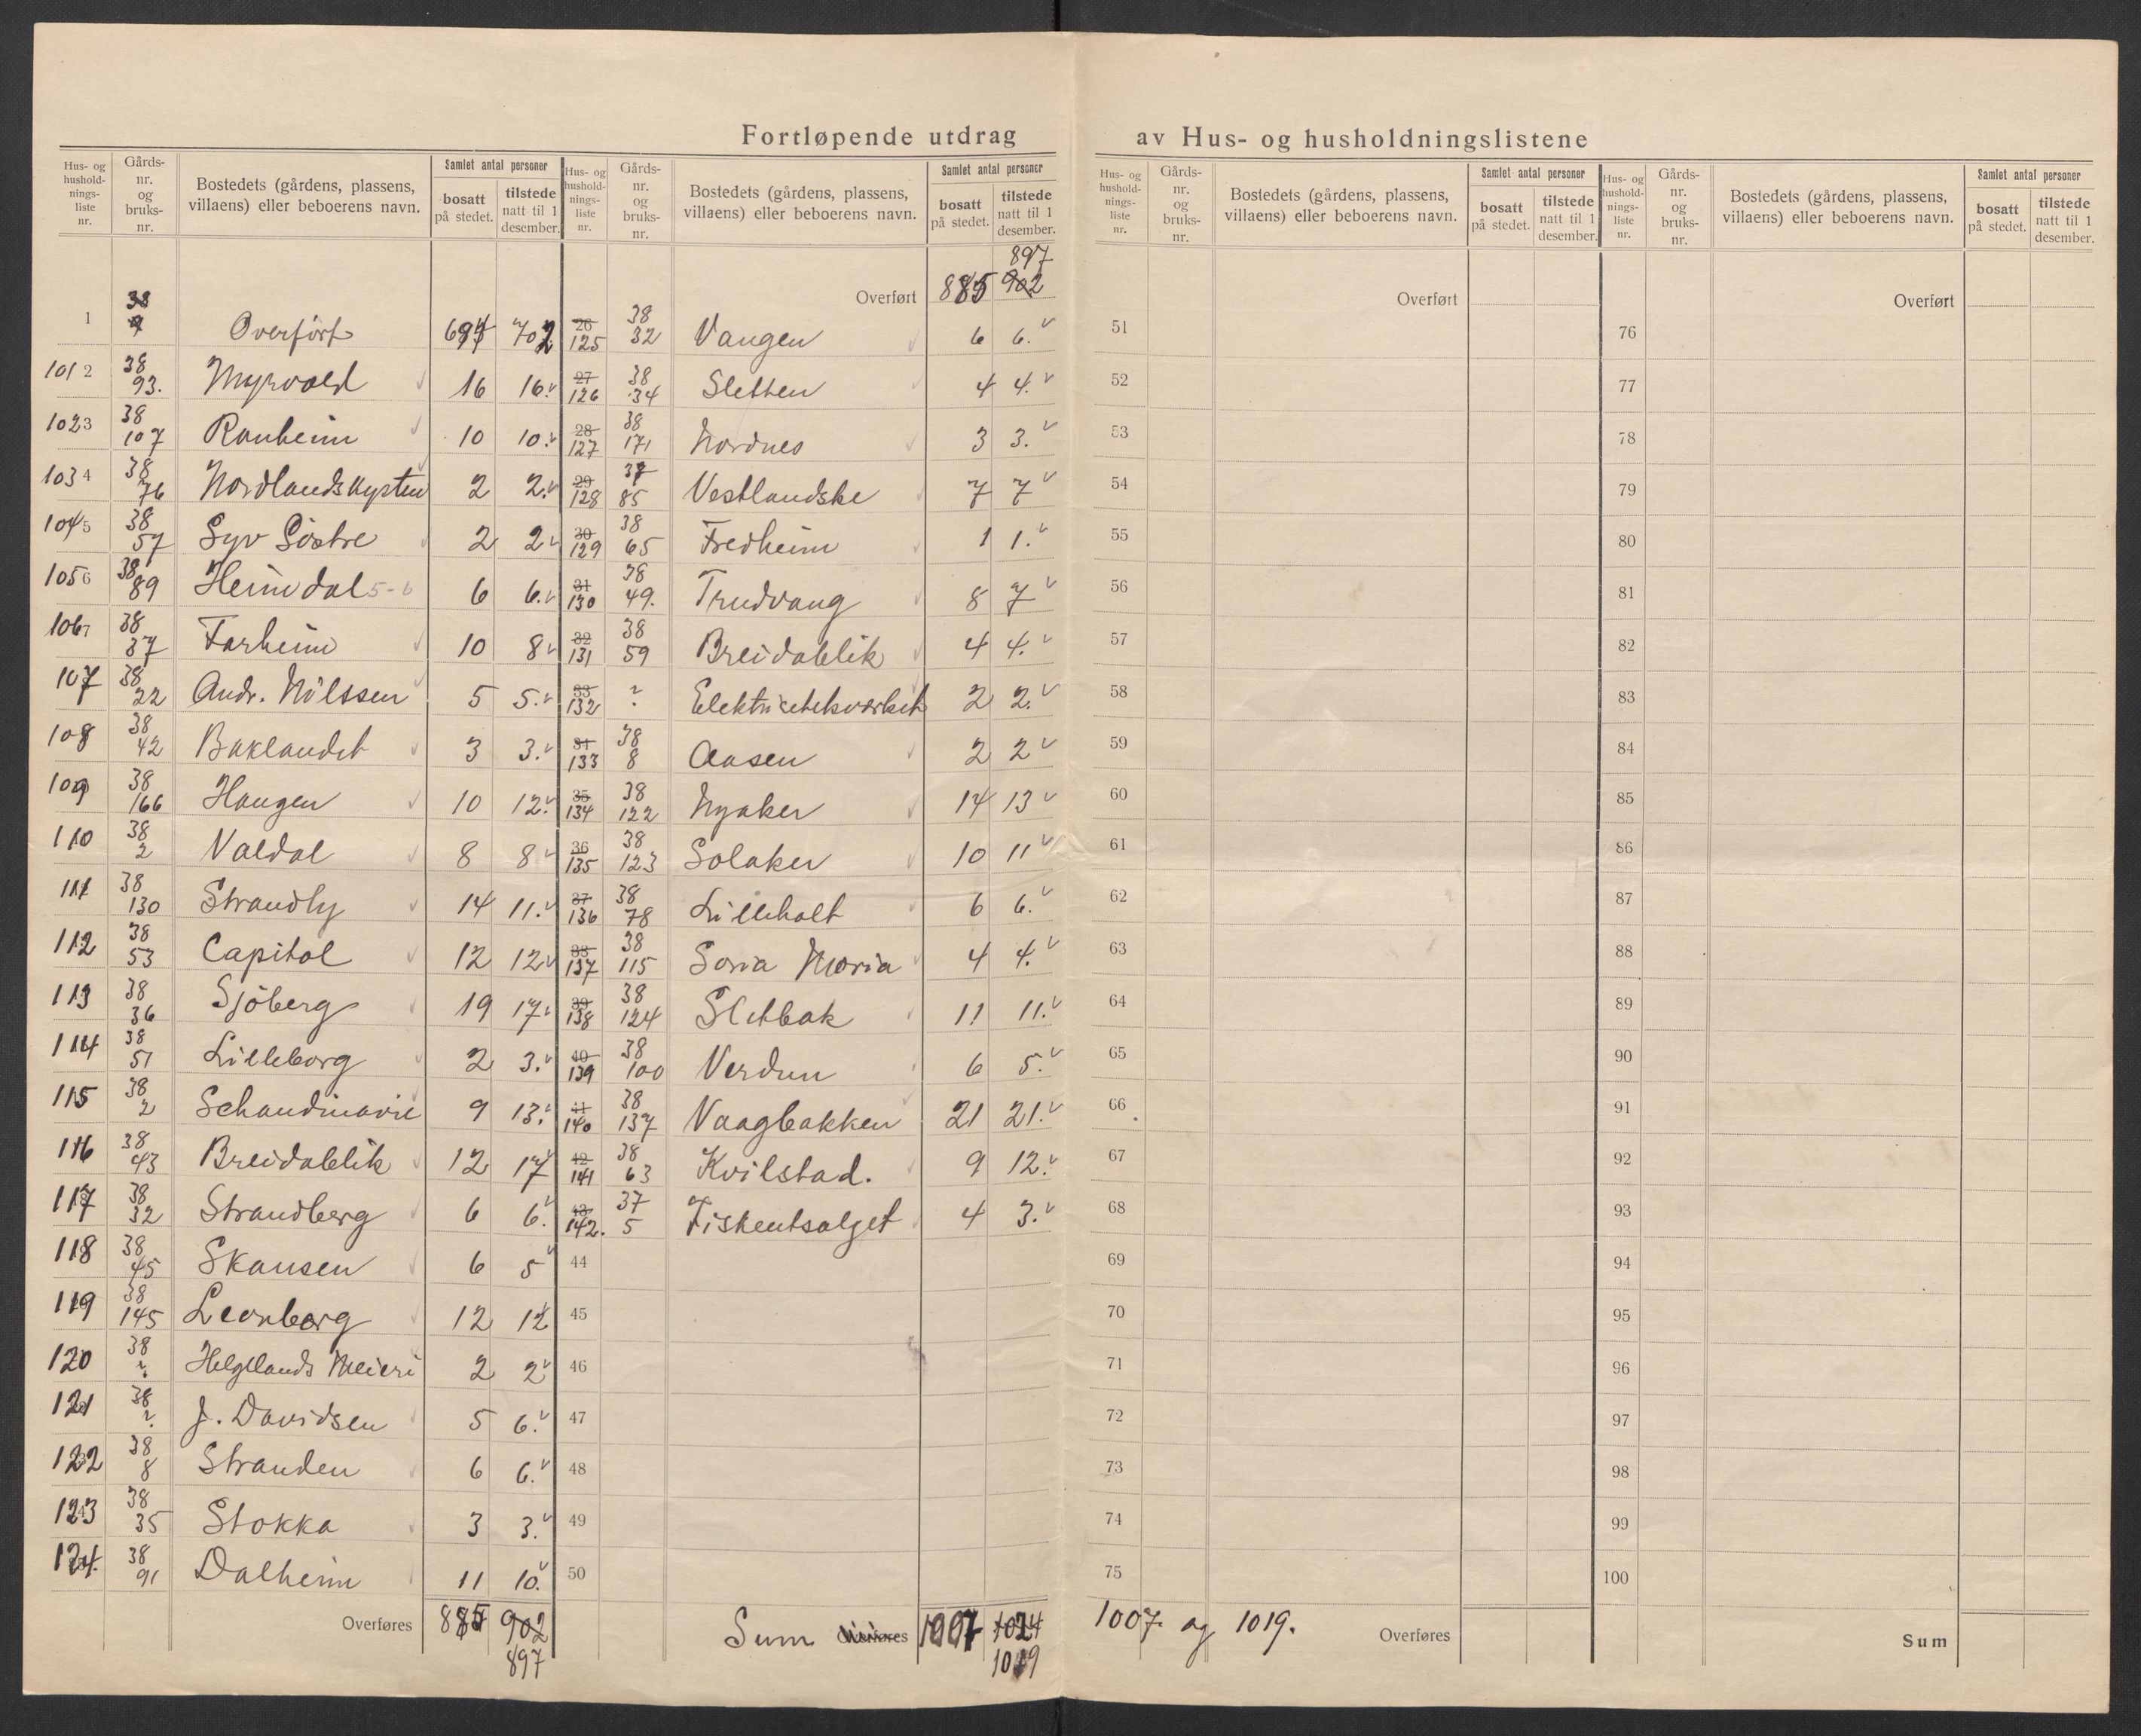 Fortløpende utdrag av Hus- og husholdningslistene
Hus- og husholdnings-liste nr. | Gårds-nr. og bruks-nr. | Bostedets (gårdens, plassens, villaens) eller beboerens navn. | Samlet antal personer bosatt på stedet. | tilstede natt til 1 desember.
1 Overført 702
101 2 38 93. Myrvold 16 16.
102 3 38 107 Ranheim 10 10.
103 4 38 76 Nordlandskysten 2 2.
104 5 38 57 Syv Søstre 2 2
105 6 38 89 Heimdal 5-6 6 6.
106 7 38 37 Farheim 10 8
107 38 22 Andr. Nilssen 5 5.
108 38 42 Baklandet 3 3.
109 38 166 Haugen 10 12.
110 38 2 Valdal 8 8
111 38 130 Strandly 14 11.
112 38 53 Capitol 12 12
113 38 36 Sjöberg 19 17.
114 38 51 Lilleborg 2 3.
115 38 2 Schandinavie 9 13.
116 38 43 Breidablik 12 17
117 38 32 Strandberg 6 6.
118 38 45 Skansen 6 5
119 38 145 Leonborg 12 12
120 38 ? Helgelands Meieri 2 2
121 38 ? J. Davidsen 5 6.
122 38 8 Stranden 6 6.
123 38 35 Stokka 3 3.
124. 38 91 Dalheim 11 10.
Overføres 885 902
897
Hus- og husholdnings-liste nr. | Gårds-nr. og bruks-nr. | Bostedets (gårdens, plassens, villaens) eller beboerens navn. | Samlet antal personer bosatt på stedet. | tilstede natt til 1 desember.
897
Overført 885 902
26 125 38 32 Vangen 6 6.
27 126 38 34 Sletten 4 4.
28 127 38 171 Nordnes 3 3.
29 128 37 85 Vestlandske 7 7
30 129 38 65 Fredheim 1 1.
31 130 38 49. Trudvang 8 7
32 131 38 59 Breidablik 4 4.
33 132 ? Elektricitetsverket 2 2.
34 133 38 8 Aasen 2 2
35 134 38 122 Nyaker 14 13
36 135 38 123 Solaker 10 11
37 136 38 78 Lilleholt 6 6.
38 137 38 115 Soria Moria 4 4.
39 138 38 124 Sletbak 11 11.
40 139 38 100 Verdun 6 5.
41 140 38 137 Vaagbakken 21 21.
42 141 38 63 Kvilstad. 9 12.
43 142. 37 5 Fiskeutsalget 4 3.
44
45
46
47
48
49
50
Sum Overføres 1007 1024
1019
Hus- og husholdnings-liste nr. | Gårds-nr. og bruks-nr. | Bostedets (gårdens, plassens, villaens) eller beboerens navn. | Samlet antal personer bosatt på stedet. | tilstede natt til 1 desember.
Overført
51
52
53
54
55
56
57
58
59
60
61
62
63
64
65
66
67
68
69
70
71
72
73
74
75
1007 og 1019. Overføres
Hus- og husholdnings-liste nr. | Gårds-nr. og bruks-nr. | Bostedets (gårdens, plassens, villaens) eller beboerens navn. | Samlet antal personer bosatt på stedet. | tilstede natt til 1 desember.
Overført
76
77
78
79
80
81
82
83
84
85
86
87
88
89
90
91
92
93
94
95
96
97
98
99
100
Sum